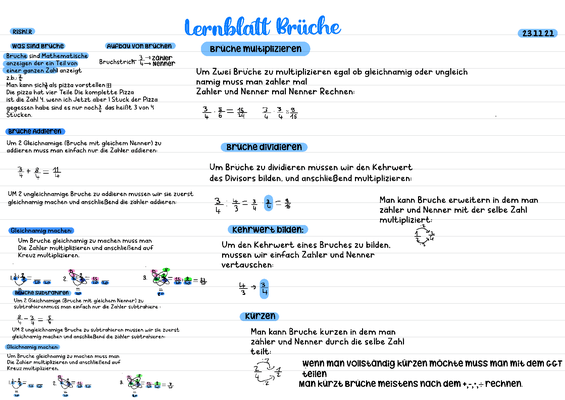 Lernblatt Brüche
23.11.21
Was sind Brüche
Brüche sind Mathematische
anzeigen der ein Teil von
einer ganzen Zahl anzeigt.
Man kann sich als pizza vorstellen !!!
Die pizza hat vier Teile Die komplette Pizza
ist die Zahl 4 wenn ich Jetzt aber 1 Stück der Pizza
gegessen habe sind es nur noch das heißt 3 von 4
Stücken.
Aufbau von Brüchen
Bruchstrich 3 → Zähler
4 → Nenner
Brüche Addieren
Um 2 Gleichnamige (Brüche mit gleichem Nenner) zu
addieren muss man einfach nur die Zahler addieren:
UM 2 ungleichnamige Brüche zu addieren müssen wir sie zuerst
gleichnamig machen und anschließend die zahler addieren:
Gleichnamig machen:
Um Brüche gleichnamig zu machen muss man
Die Zahler multiplizieren und anschließend auf
Kreuz multiplizieren.
Brüche subtrahiren
Um 2 Gleichnamige (Brüche mit gleichem Nenner) zu
UM 2 ungleichnamige Brüche zu subtrahieren müssen wir sie zuerst
gleichnamig machen und anschließend die zahler subtrahieren:
Gleichnamig machen:
Um Brüche gleichnamig zu machen muss man
Die Zahler multiplizieren und anschließend auf
Kreuz multiplizieren.
Brüche multiplizieren
Um Zwei Brüche zu multiplizieren egal ob gleichnamig oder ungleich
namig muss man zahler mal
Zahler und Nenner mal Nenner Rechnen:
Brüche dividieren
Um Brüche zu dividieren müssen wir den Kehrwert
des Divisors bilden, und anschließend multiplizieren:
Man kann Brüche erweitern in dem man
zahler und Nenner mit der selbe Zahl
multipliziert:
Kehrwert bilden:
Um den Kehrwert eines Bruches zu bilden,
müssen wir einfach Zahler und Nenner
vertauschen:
4/3 → 3/4
Kürzen
Man kann Brüche kürzen in dem man
zahler und Nenner durch die selbe Zahl
teilt:
Wenn man vollständig kürzen möchte muss man mit dem GGT
teilen
Man kürzt Brüche meistens nach dem +,-,·,÷ rechnen.